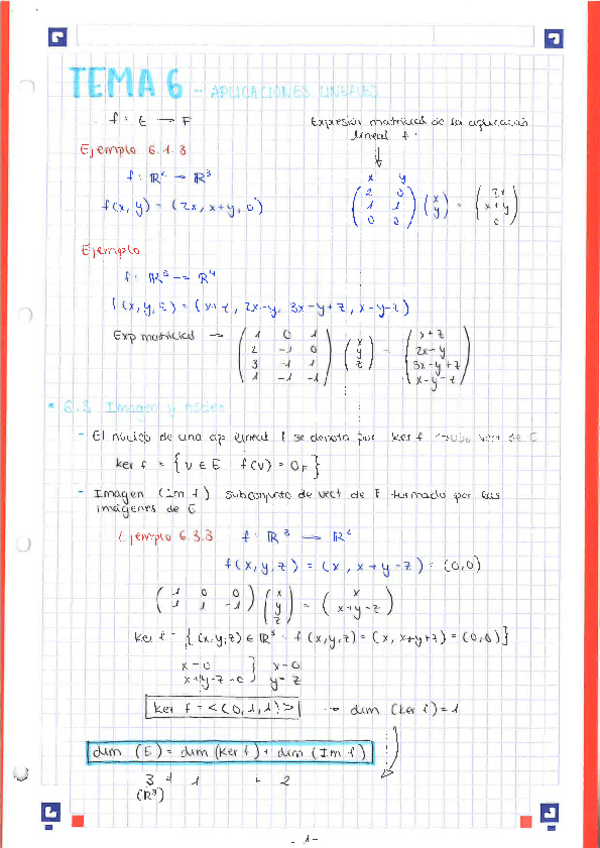 TEMA 6 - APLICACIONES LINEALES
f: E → F
Expresión matricial de la aplicación
lineal f.
Ejemplo 6.1.3
f: R² → R³
x y
f(x,y) = (2x, x+y, 0)
( 2 0 ) ( 2x )
( 1 1 ) ( x y ) = ( x+y )
( 0 0 ) ( 0 )
Ejemplo
f: R³ → R⁴
f(x,y,z) = (x+z, 2x-y, 3x-y+z, x-y-z)
Exp matricial →
( 1 0 1 ) ( x+z )
( 2 -1 0 ) ( x y z ) = ( 2x-y )
( 3 -1 1 ) ( 3x-y+z )
( 1 -1 -1 ) ( x-y-z )
* 6.3 Imagen y núcleo
- El núcleo de una ap lineal f se denota por ker f → subc vect de E
ker f = { v ∈ E f(v) = 0F }
- Imagen (im f) subconjunto de vect de F formado por las
imágenes de E
Ejemplo 6.3.3 f: R³ → R²
f(x,y,z) = (x, x+y-z) = (0,0)
( 1 0 0 ) ( x y z ) = ( x )
( 1 1 -1 ) ( x+y-z )
ker f = { (x,y,z) ∈ R³ : f(x,y,z) = (x, x+y+z) = (0,0) }
x=0 } x=0
x+y-z=0 } y=z
ker f = <(0,1,1)> → dim (ker f) = 1
dim (E) = dim (ker f) + dim (Im f)
3 1 + 2
(R³)
-1-